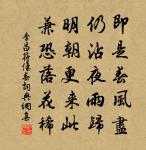 即是春風盡
仍沾夜雨歸
明朝更來此
兼恐落花稀
李昌符傷春詞典網集